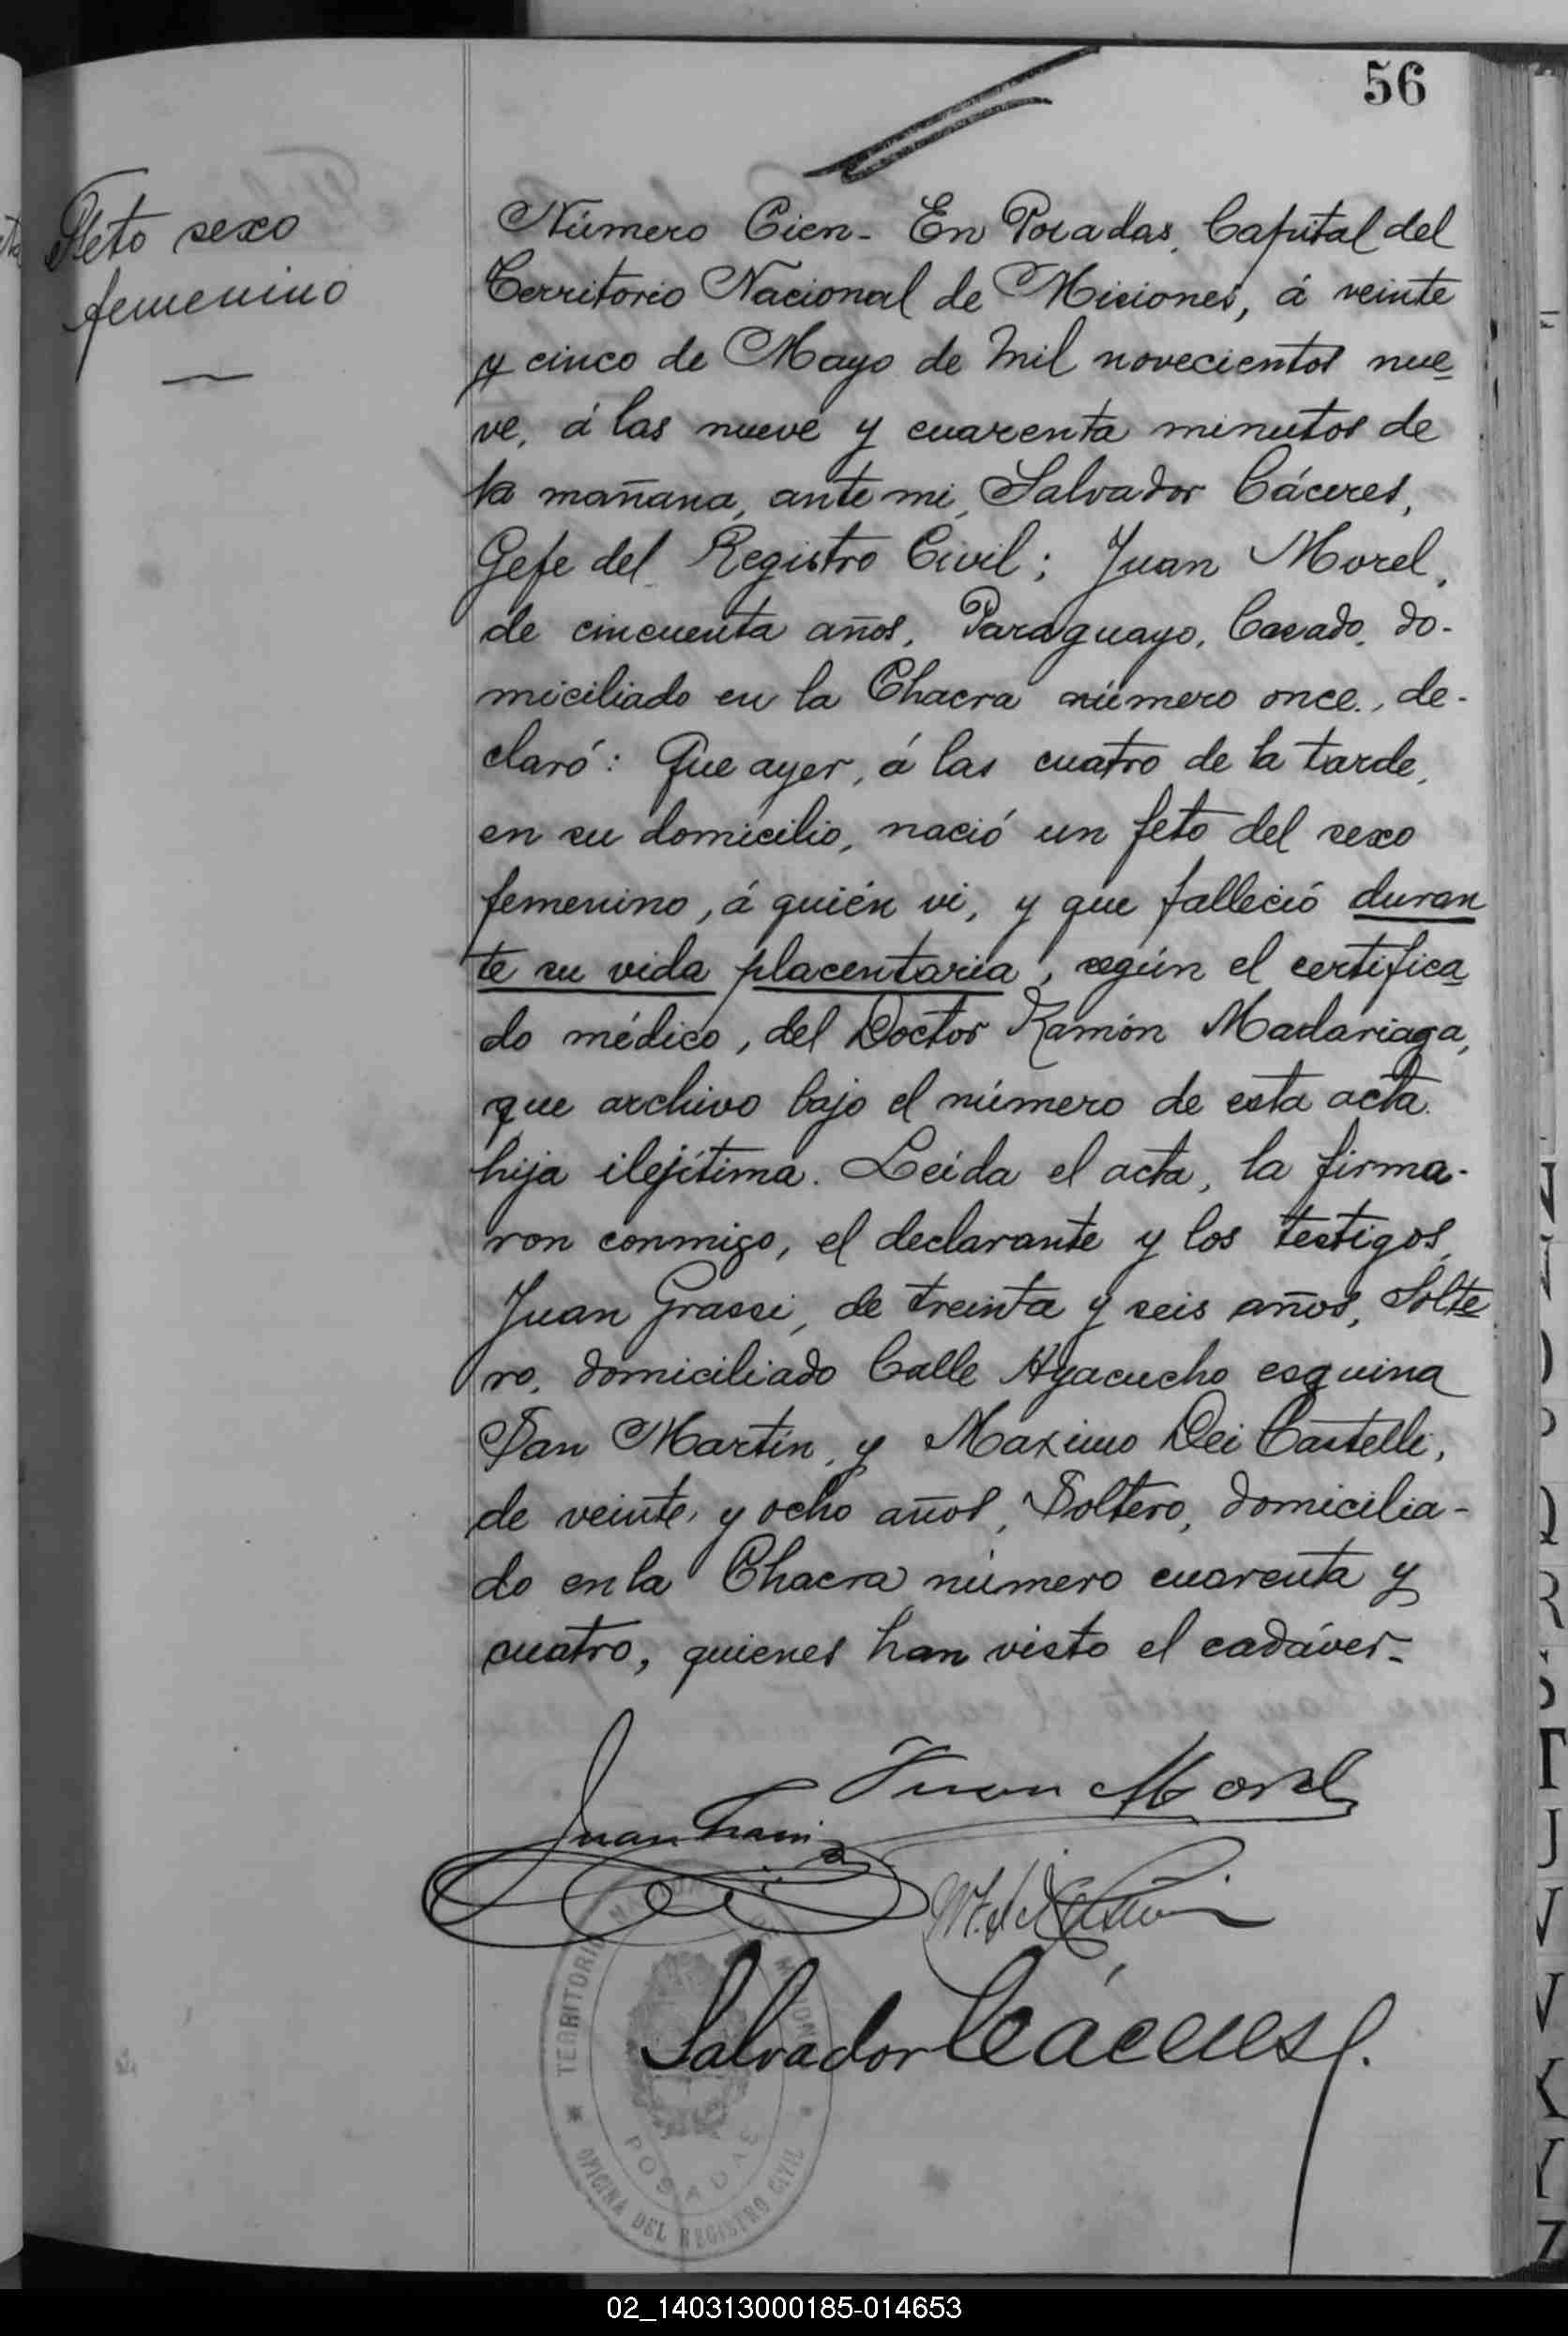 56
Feto sexo
femenino
Número Cien - En Posadas, Capital del
Territorio Nacional de Misiones, á veinte
y cinco de Mayo de Mil novecientos nue
ve, á las nueve y cuarenta minutos de
la mañana, ante mi, Salvador Cáceres,
Gefe del Registro Civil; Juan Morel,
de cincuenta años, Paraguayo, Casado, do-
miciliado en la Chacra número once, de-
claró: Que ayer, á las cuatro de la tarde,
en su domicilio, nació un feto del sexo
femenino, á quién vi, y que falleció duran
te su vida placentaria, según el certifica
do médico, del Doctor Ramón Madariaga,
que archivo bajo el número de esta acta.
hija ilejítima. Leída el acta, la firma-
ron conmigo, el declarante y los testigos,
Juan Grassi, de treinta y seis años, Solte
ro, domiciliado Calle Ayacucho esquina
San Martín, y Maximo Dei Castelli,
de veinte y ocho años, Soltero, domicilia-
do en la Chacra número cuarenta y
cuatro, quienes han visto el cadáver-
Juan Morel
Juan Grassi
Salvador Cáceres
TERRITORIO NACIONAL DE MISIONES
POSADAS
OFICINA DEL REGISTRO CIVIL
02_140313000185-014653